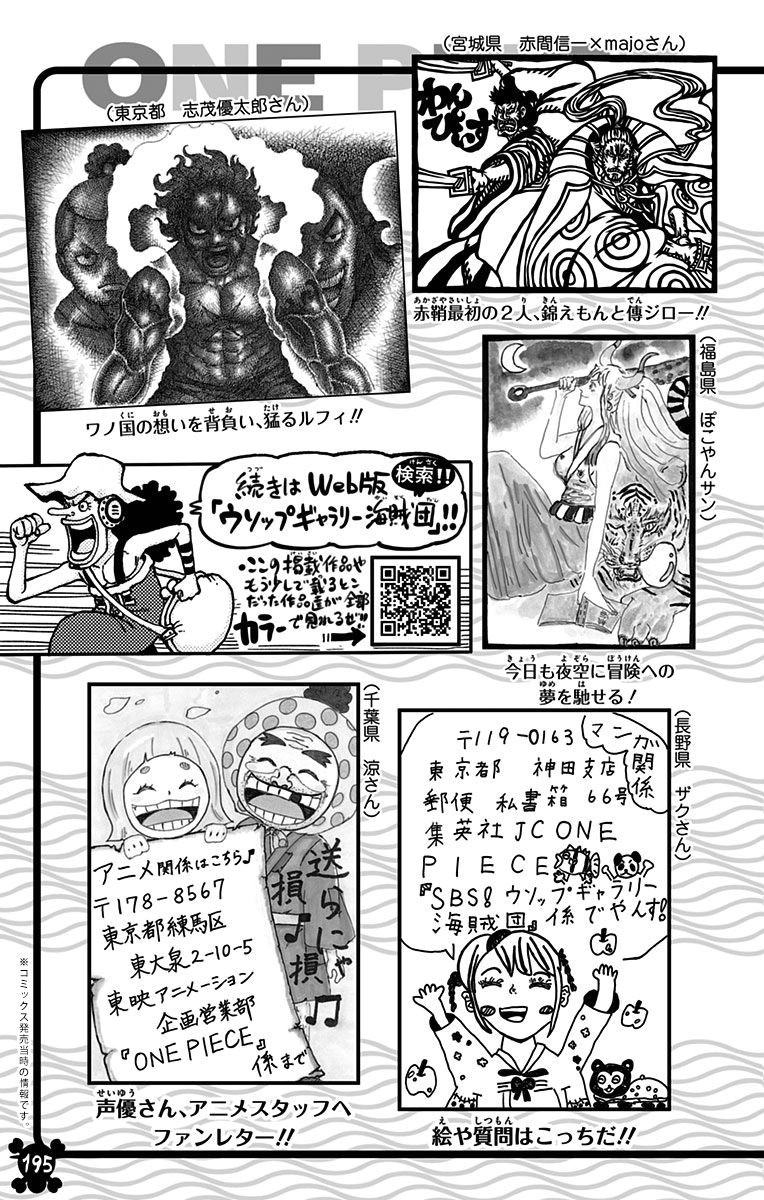 ONE PIECE
(宮城県 赤間信一×majoさん)
(東京都 志茂優太郎さん)
わん
ぴいす
赤鞘最初の2人、錦えもんと傳ジロー!!
ワノ国の想いを背負い、猛るルフィ!!
(福島県 ぽこやんサン)
続きはWeb版
検索!!
「ウソップギャラリー海賊団」!!
・ここの掲載作品や
もう少しで載るとこ
だった作品達が全部
カラーで見れるぜ!!
今日も夜空に冒険への
夢を馳せる!
(千葉県 涼さん)
アニメ関係はこちら♪
〒178-8567
東京都練馬区
東大泉2-10-5
東映アニメーション
企画営業部
『ONE PIECE』係まで
送らにゃ
損♪損♫
声優さん、アニメスタッフへ
ファンレター!!
(長野県 ザクさん)
マンガ関係
〒119-0163
東京都 神田支店
郵便 私書箱 66号
集英社JC ONE
PIECE
『SBS&ウソップギャラリー
海賊団』係でやんす!
絵や質問はこっちだ!!
※コミックス発売当時の情報です。
195